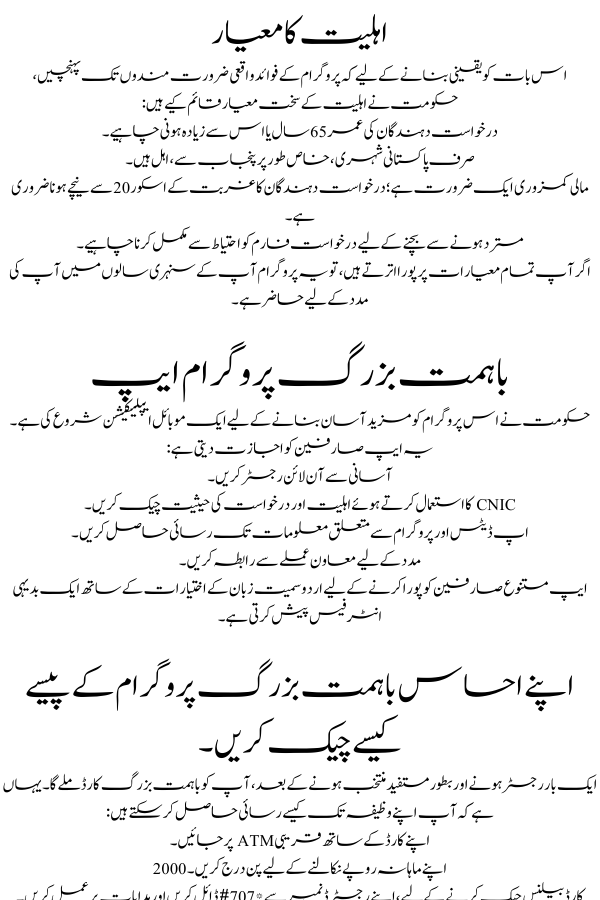 اہلیت کا معیار
اس بات کو یقینی بنانے کے لیے کہ پروگرام کے فوائد واقعی ضرورت مندوں تک پہنچیں،
حکومت نے اہلیت کے سخت معیار قائم کیے ہیں:
درخواست دہندگان کی عمر 65 سال یا اس سے زیادہ ہونی چاہیے۔
صرف پاکستانی شہری، خاص طور پر پنجاب سے، اہل ہیں۔
مالی کمزوری ایک ضرورت ہے؛ درخواست دہندگان کا غربت کے اسکور 20 سے نیچے ہونا ضروری
ہے۔
مسترد ہونے سے بچنے کے لیے درخواست فارم کو احتیاط سے مکمل کرنا چاہیے۔
اگر آپ تمام معیارات پر پورا اترتے ہیں، تو یہ پروگرام آپ کے سنہری سالوں میں آپ کی
مدد کے لیے حاضر ہے۔
باہمت بزرگ پروگرام ایپ
حکومت نے اس پروگرام کو مزید آسان بنانے کے لیے ایک موبائل ایپلیکیشن شروع کی ہے۔
یہ ایپ صارفین کو اجازت دیتی ہے:
آسانی سے آن لائن رجسٹر کریں۔
CNIC کا استعمال کرتے ہوئے اہلیت اور درخواست کی حیثیت چیک کریں۔
اپ ڈیٹس اور پروگرام سے متعلق معلومات تک رسائی حاصل کریں۔
مدد کے لیے معاون عملے سے رابطہ کریں۔
ایپ متنوع صارفین کو پورا کرنے کے لیے اردو سمیت زبان کے اختیارات کے ساتھ ایک بدیہی
انٹرفیس پیش کرتی ہے۔
اپنے احساس باہمت بزرگ پروگرام کے پیسے
کیسے چیک کریں۔
ایک بار رجسٹر ہونے اور بطور مستفید منتخب ہونے کے بعد، آپ کو باہمت بزرگ کارڈ ملے گا۔ یہاں
ہے کہ آپ اپنے وظیفہ تک کیسے رسائی حاصل کر سکتے ہیں:
اپنے کارڈ کے ساتھ قریبی ATM پر جائیں۔
اپنے ماہانہ روپے نکالنے کے لیے پن درج کریں۔ 2000
کارڈ بیلنس چیک کرنے کے لیے، اپنے رجسٹرڈ نمبر سے *707# ڈائل کریں اور ہدایات پر عمل کریں۔